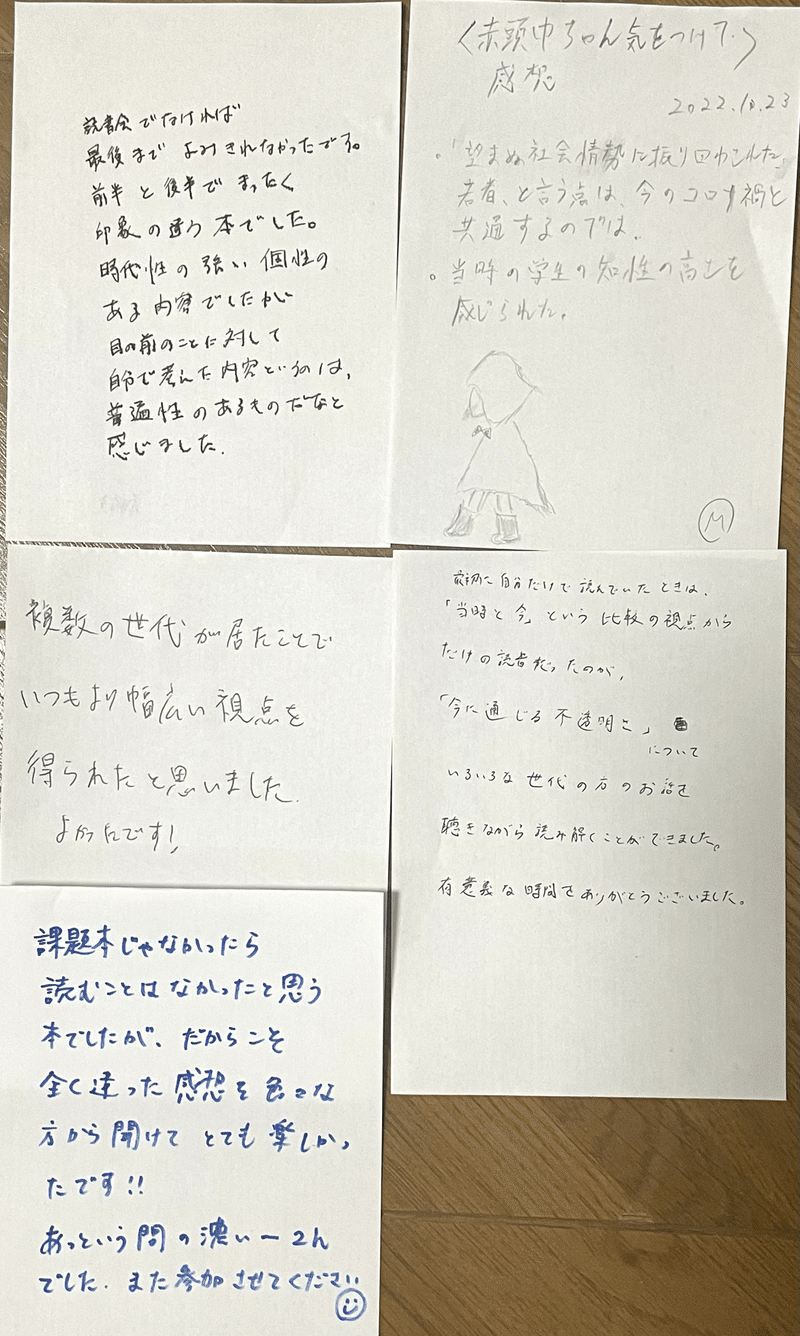 読書会でなければ
最後まで よみきれなかったです。
前半と後半でまったく
印象の違う本でした。
時代性の強い個性の
ある内容でしたが
目の前のことに対して
自分で考えた内容というのは、
普遍性のあるものだなと
感じました.
〈赤頭巾ちゃん気をつけて〉
感想
2022.10.23
。「望まぬ社会情勢に振り回わされた
若者、と言う点は、今のコロナ禍と
共通するのでは.
。当時の学生の知性の高さを
感じられた。
M
複数の世代が居たことで
いつもより幅広い視点を
得られたと思いました.
よかったです!
最初に自分だけで読んでいたときは、
「当時と今」という比較の視点から
だけの読者だったのが、
「今に通じる不透明さ」
について
いろいろな世代の方のお話を
聴きながら読み解くことができました。
有意義な時間をありがとうございました。
課題本じゃなかったら
読むことはなかったと思う
本でしたが、だからこそ
全く違った感想を色々な
方から聞けてとても楽しかっ
たです!!
あっという間の濃い
でした. また参加させてください